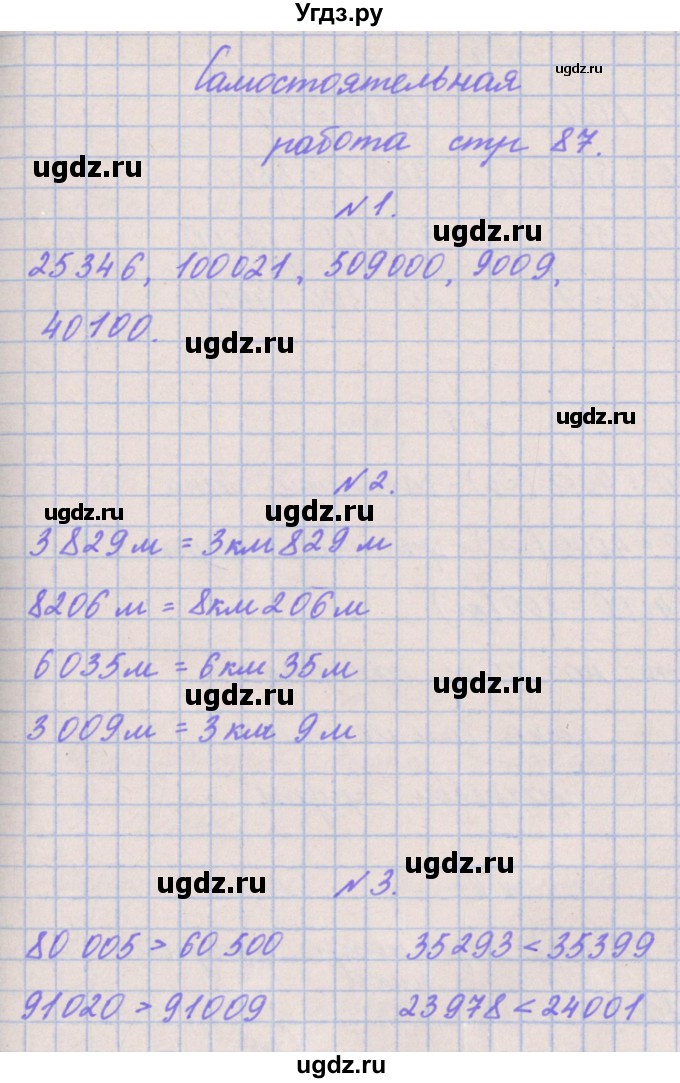 Угдз.ру
Самостоятельная
ugdz.ru
работа стр 87.
ugdz.ru
№1.
ugdz.ru
25346, 100021, 509000, 9009,
40100.
ugdz.ru
ugdz.ru
№2.
ugdz.ru
ugdz.ru
3829м = 3км 829м
8206м = 8км 206м
6035м = 6км 35м
ugdz.ru
ugdz.ru
3009м = 3км 9м
ugdz.ru
ugdz.ru
№3.
80 005 > 60 500 35293 < 35399
91020 > 91009 23978 < 24001
ugdz.ru